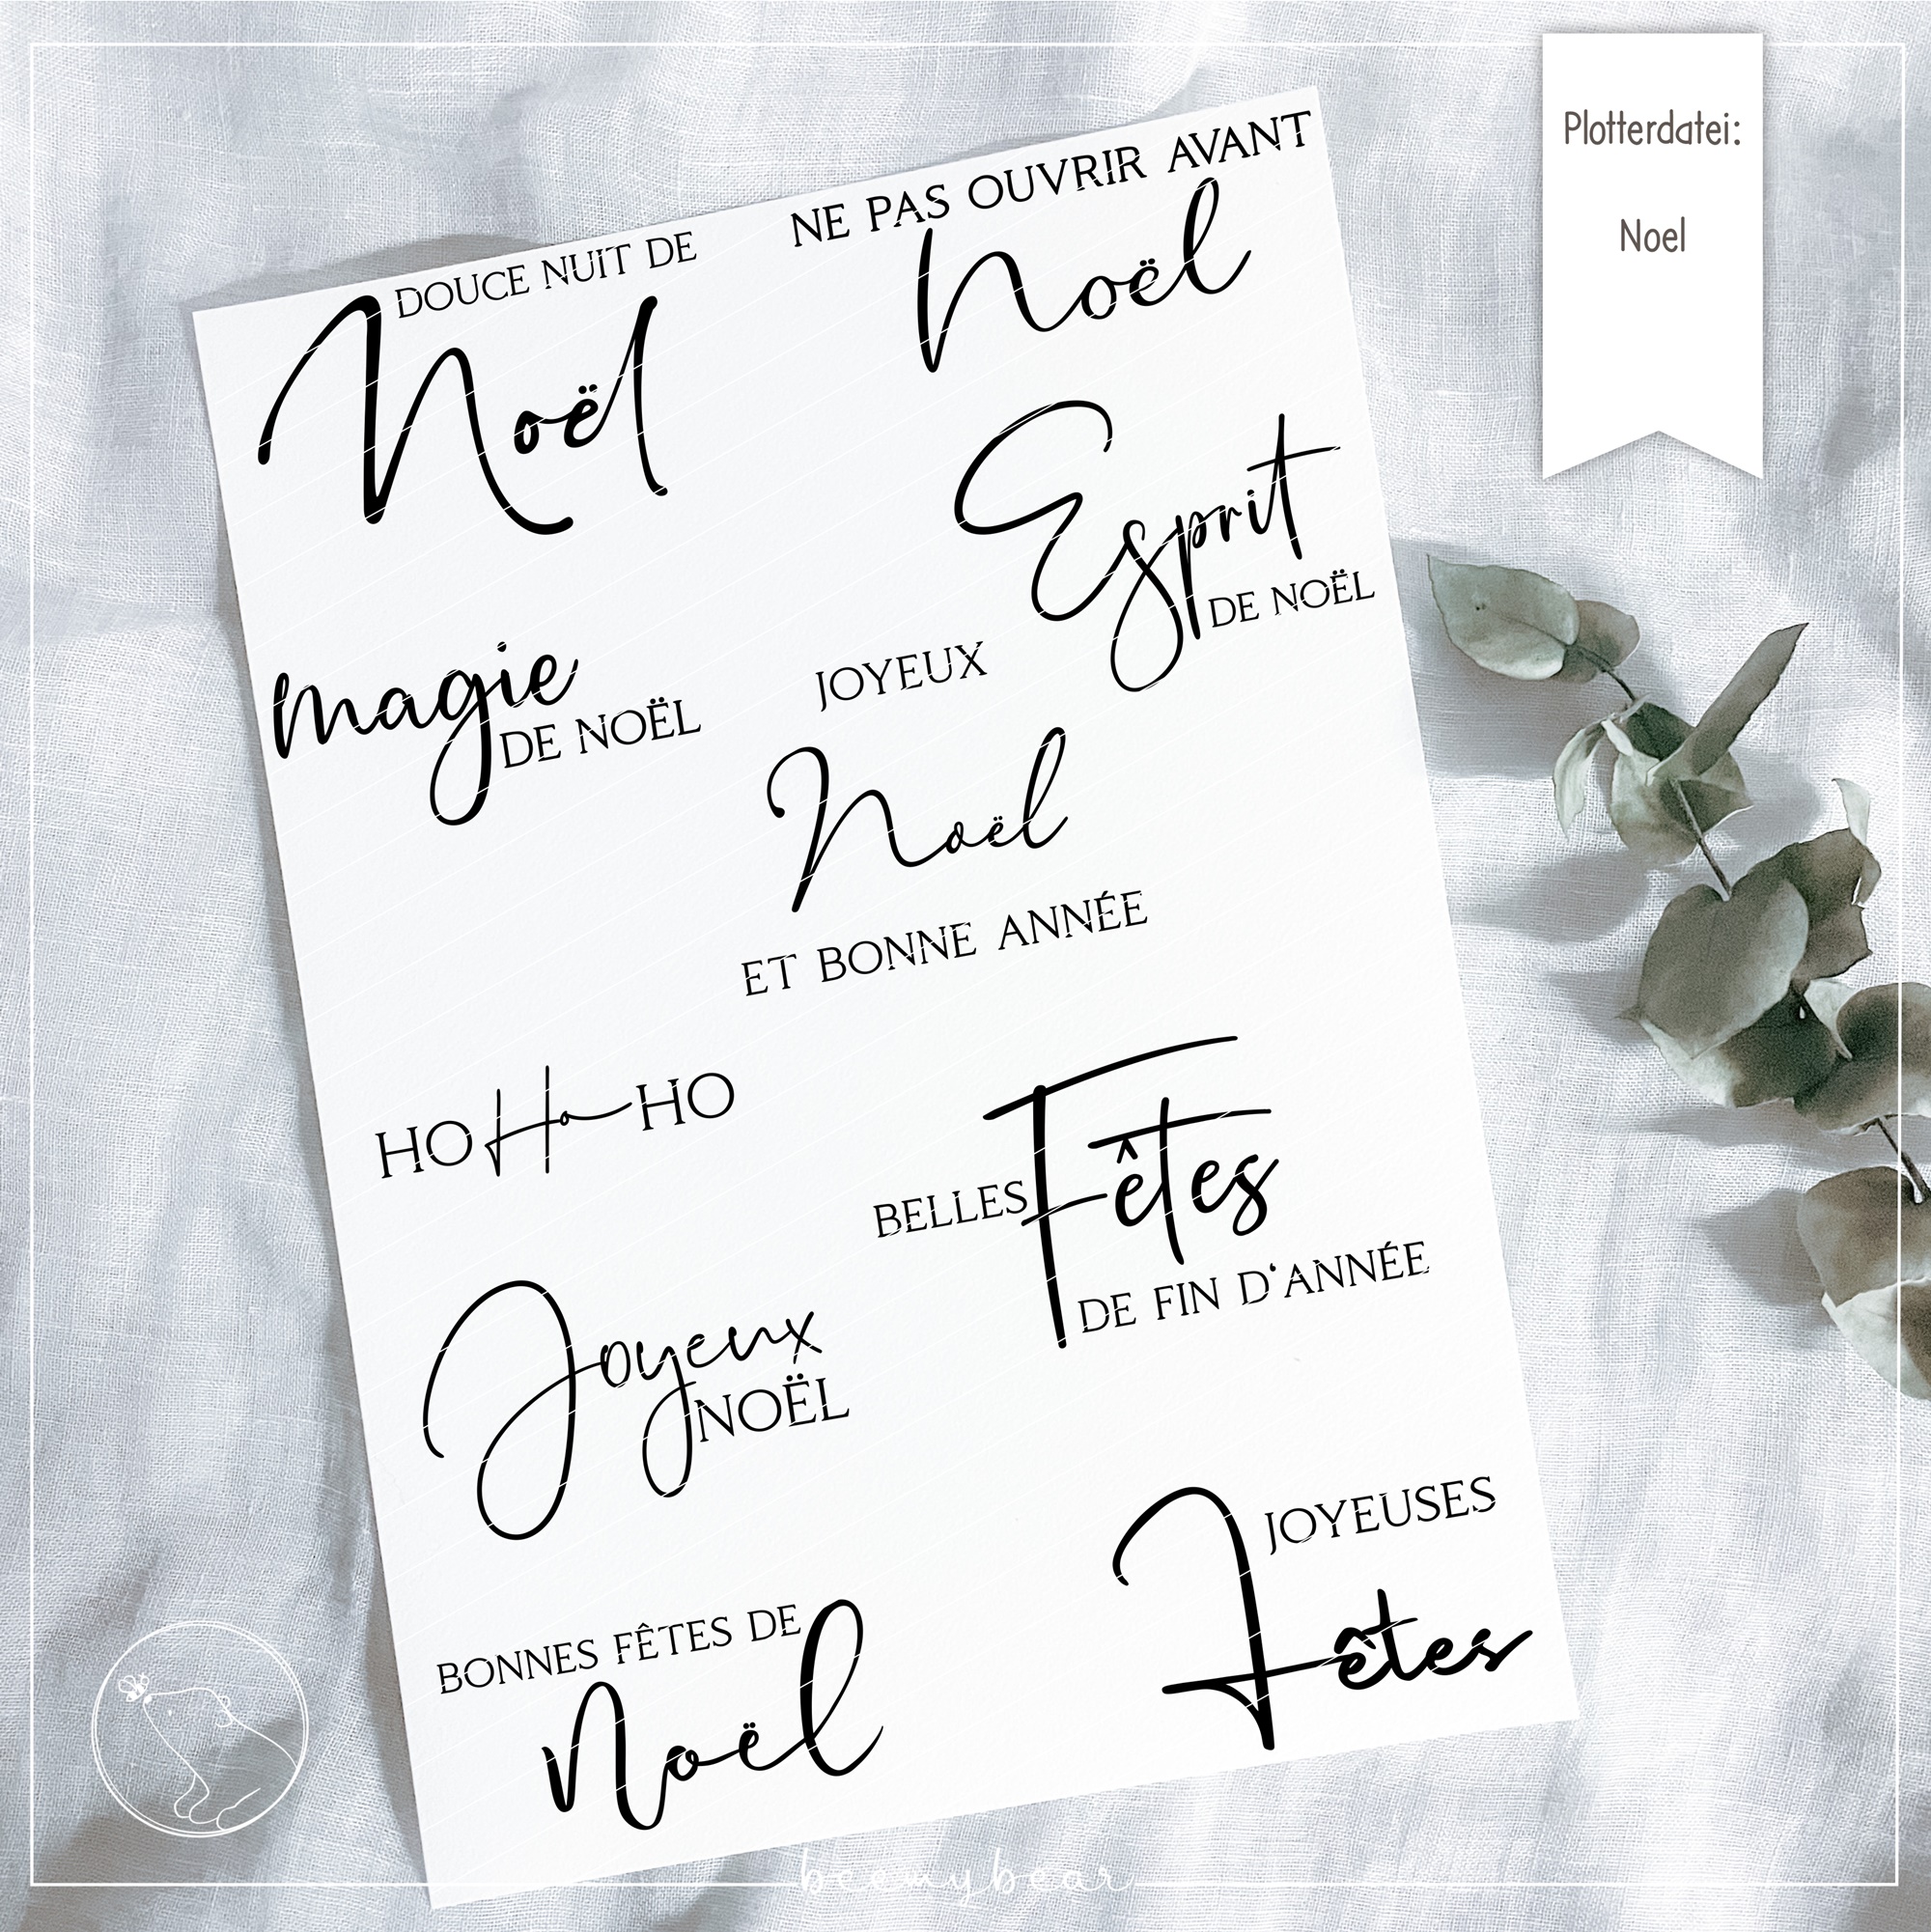 Plotterdatei:
Noel
DOUCE NUIT DE
Noël
NE PAS OUVRIR AVANT
Noël
Esprit
DE NOËL
magie
DE NOËL
JOYEUX
Noël
ET BONNE ANNÉE
HO Ho HO
BELLES Fêtes
DE FIN D‘ANNÉE
Joyeux
NOËL
JOYEUSES
Fêtes
BONNES FÊTES DE
Noël
beemybear